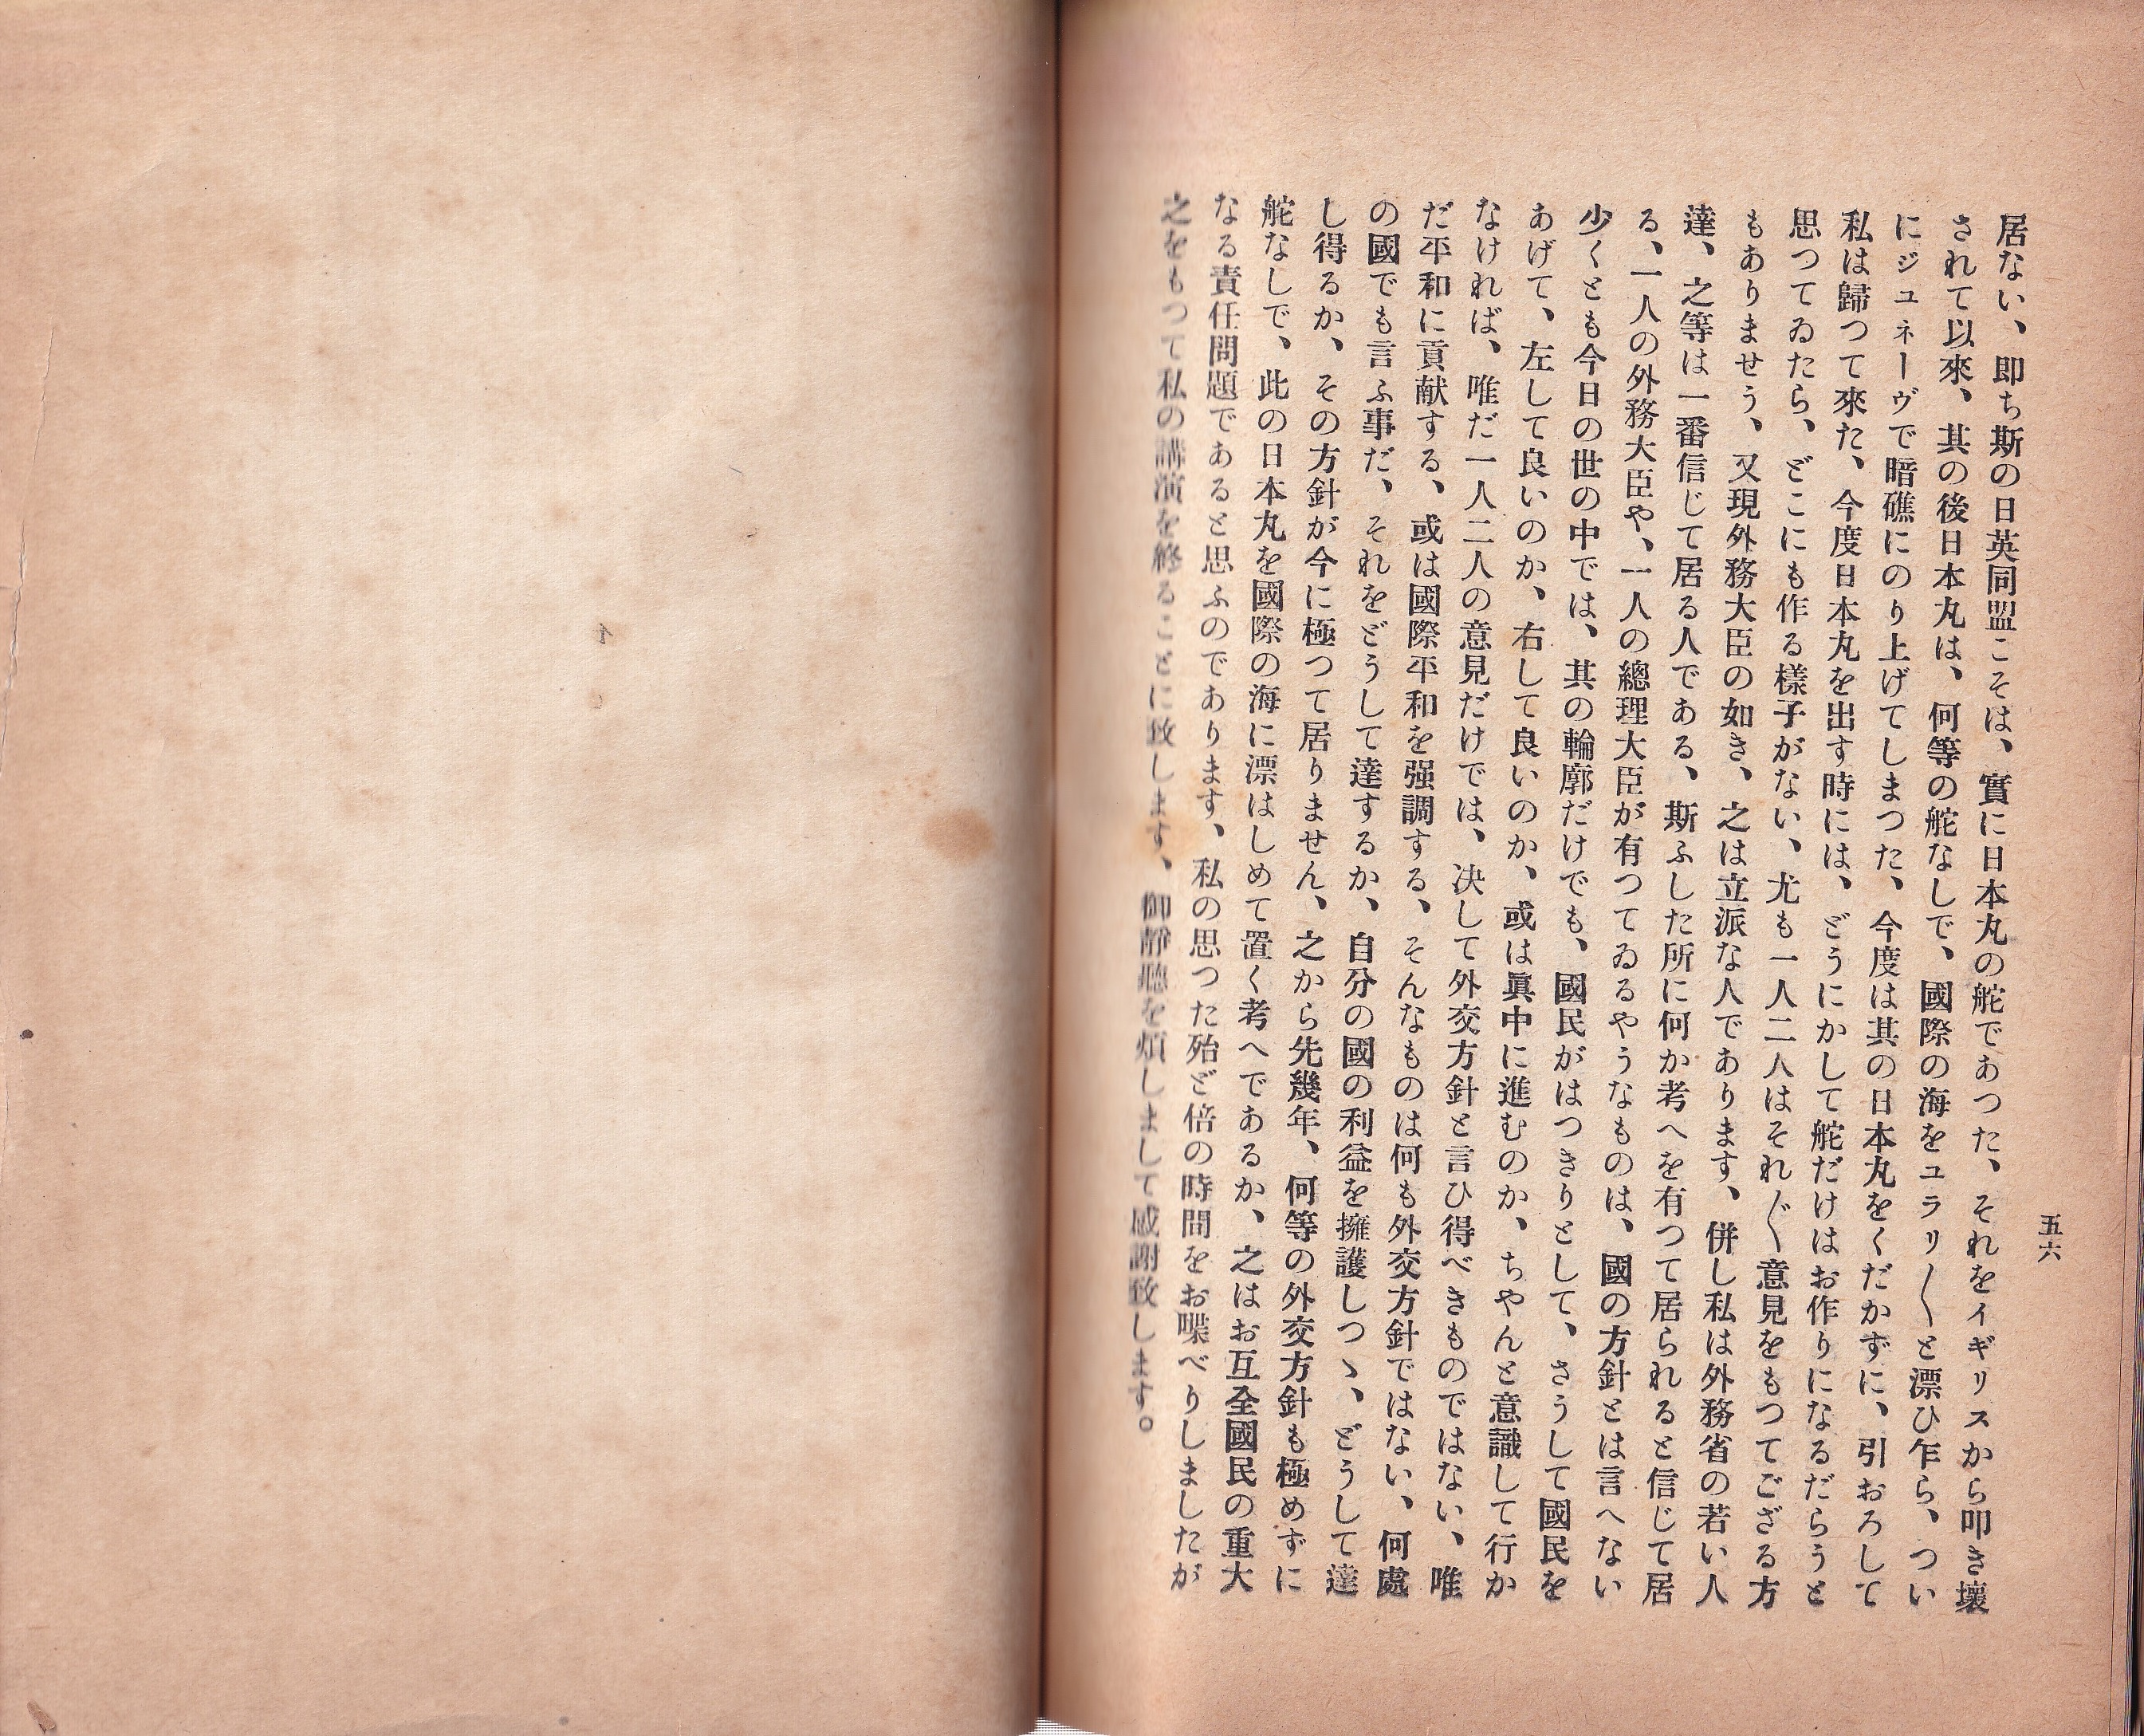 五六
居ない、即ち斯の日英同盟こそは、實に日本丸の舵であつた、それをイギリスから叩き壞
されて以來、其の後日本丸は、何等の舵なしで、國際の海をユラリ〳〵と漂ひ乍ら、つい
にジュネーヴで暗礁にのり上げてしまつた、今度は其の日本丸をくだかずに、引おろして
私は歸つて來た、今度日本丸を出す時には、どうにかして舵だけはお作りになるだらうと
思つてゐたら、どこにも作る樣子がない、尤も一人二人はそれ〴〵意見をもつてござる方
もありませう、又現外務大臣の如き、之は立派な人であります、併し私は外務省の若い人
達、之等は一番信じて居る人である、斯ふした所に何か考へを有つて居られると信じて居
る、一人の外務大臣や、一人の總理大臣が有つてゐるやうなものは、國の方針とは言へない
少くとも今日の世の中では、其の輪廓だけでも、國民がはつきりとして、さうして國民を
あげて、左して良いのか、右して良いのか、或は眞中に進むのか、ちやんと意識して行か
なければ、唯だ一人二人の意見だけでは、决して外交方針と言ひ得べきものではない、唯
だ平和に貢献する、或は國際平和を强調する、そんなものは何も外交方針ではない、何處
の國でも言ふ事だ、それをどうして達するか、自分の國の利益を擁護しつゝ、どうして達
し得るか、その方針が今に極つて居りません、之から先幾年、何等の外交方針も極めずに
舵なしで、此の日本丸を國際の海に漂はしめて置く考へであるか、之はお互全國民の重大
なる責任問題であると思ふのであります、私の思つた殆ど倍の時間をお喋べりしましたが
之をもつて私の講演を終ることに致します、御靜聽を煩しまして感謝致します。